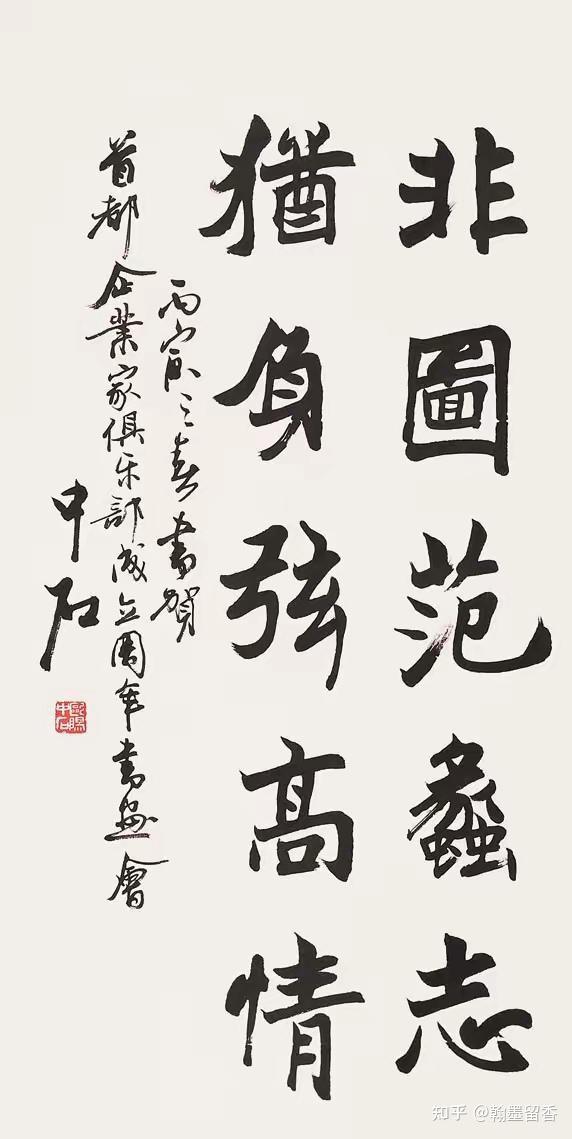 非圖范蠡志
猶負弦高情
丙寅之春書賀
首都企業家俱乐部成立周年書画會
中石
歐陽中石
知乎 @翰墨留香